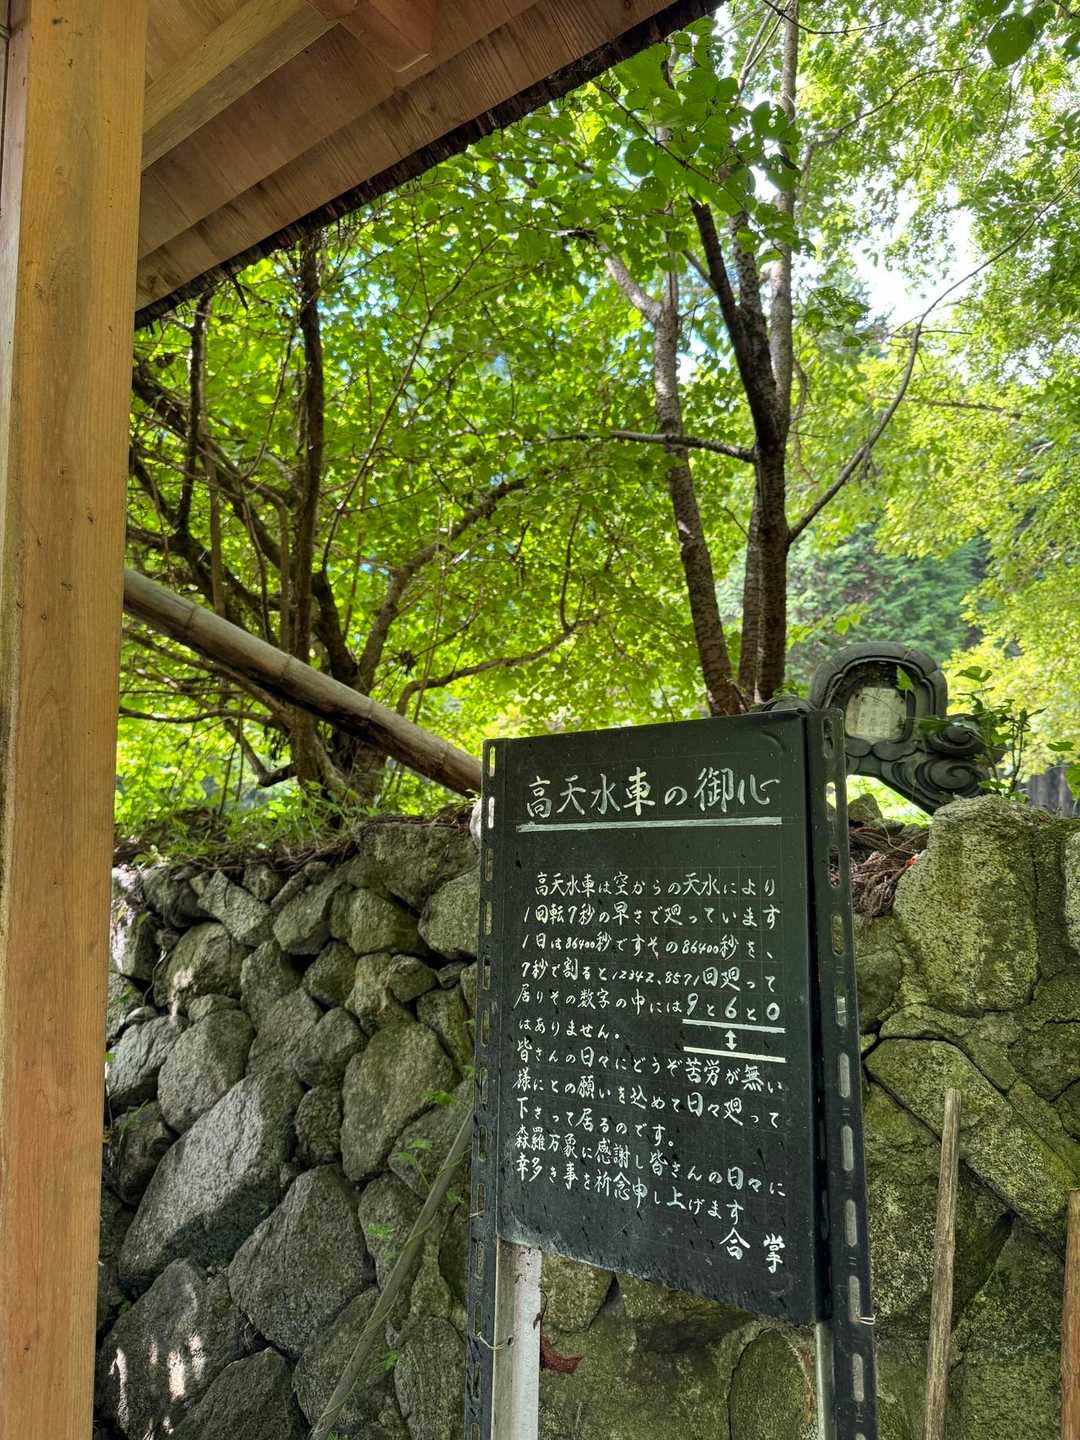 高天水車の御心
高天水車は空からの天水により
1回転7秒の早さで廻っています
1日は86400秒ですその86400秒を、
7秒で割ると12342、8571回廻って
居りその数字の中には9と6と0
はありません。
皆さんの日々にどうぞ苦労が無い
様にとの願いを込めて日々廻って
下さって居るのです。
森羅万象に感謝し皆さんの日々に
幸多き事を祈念申し上げます
合掌